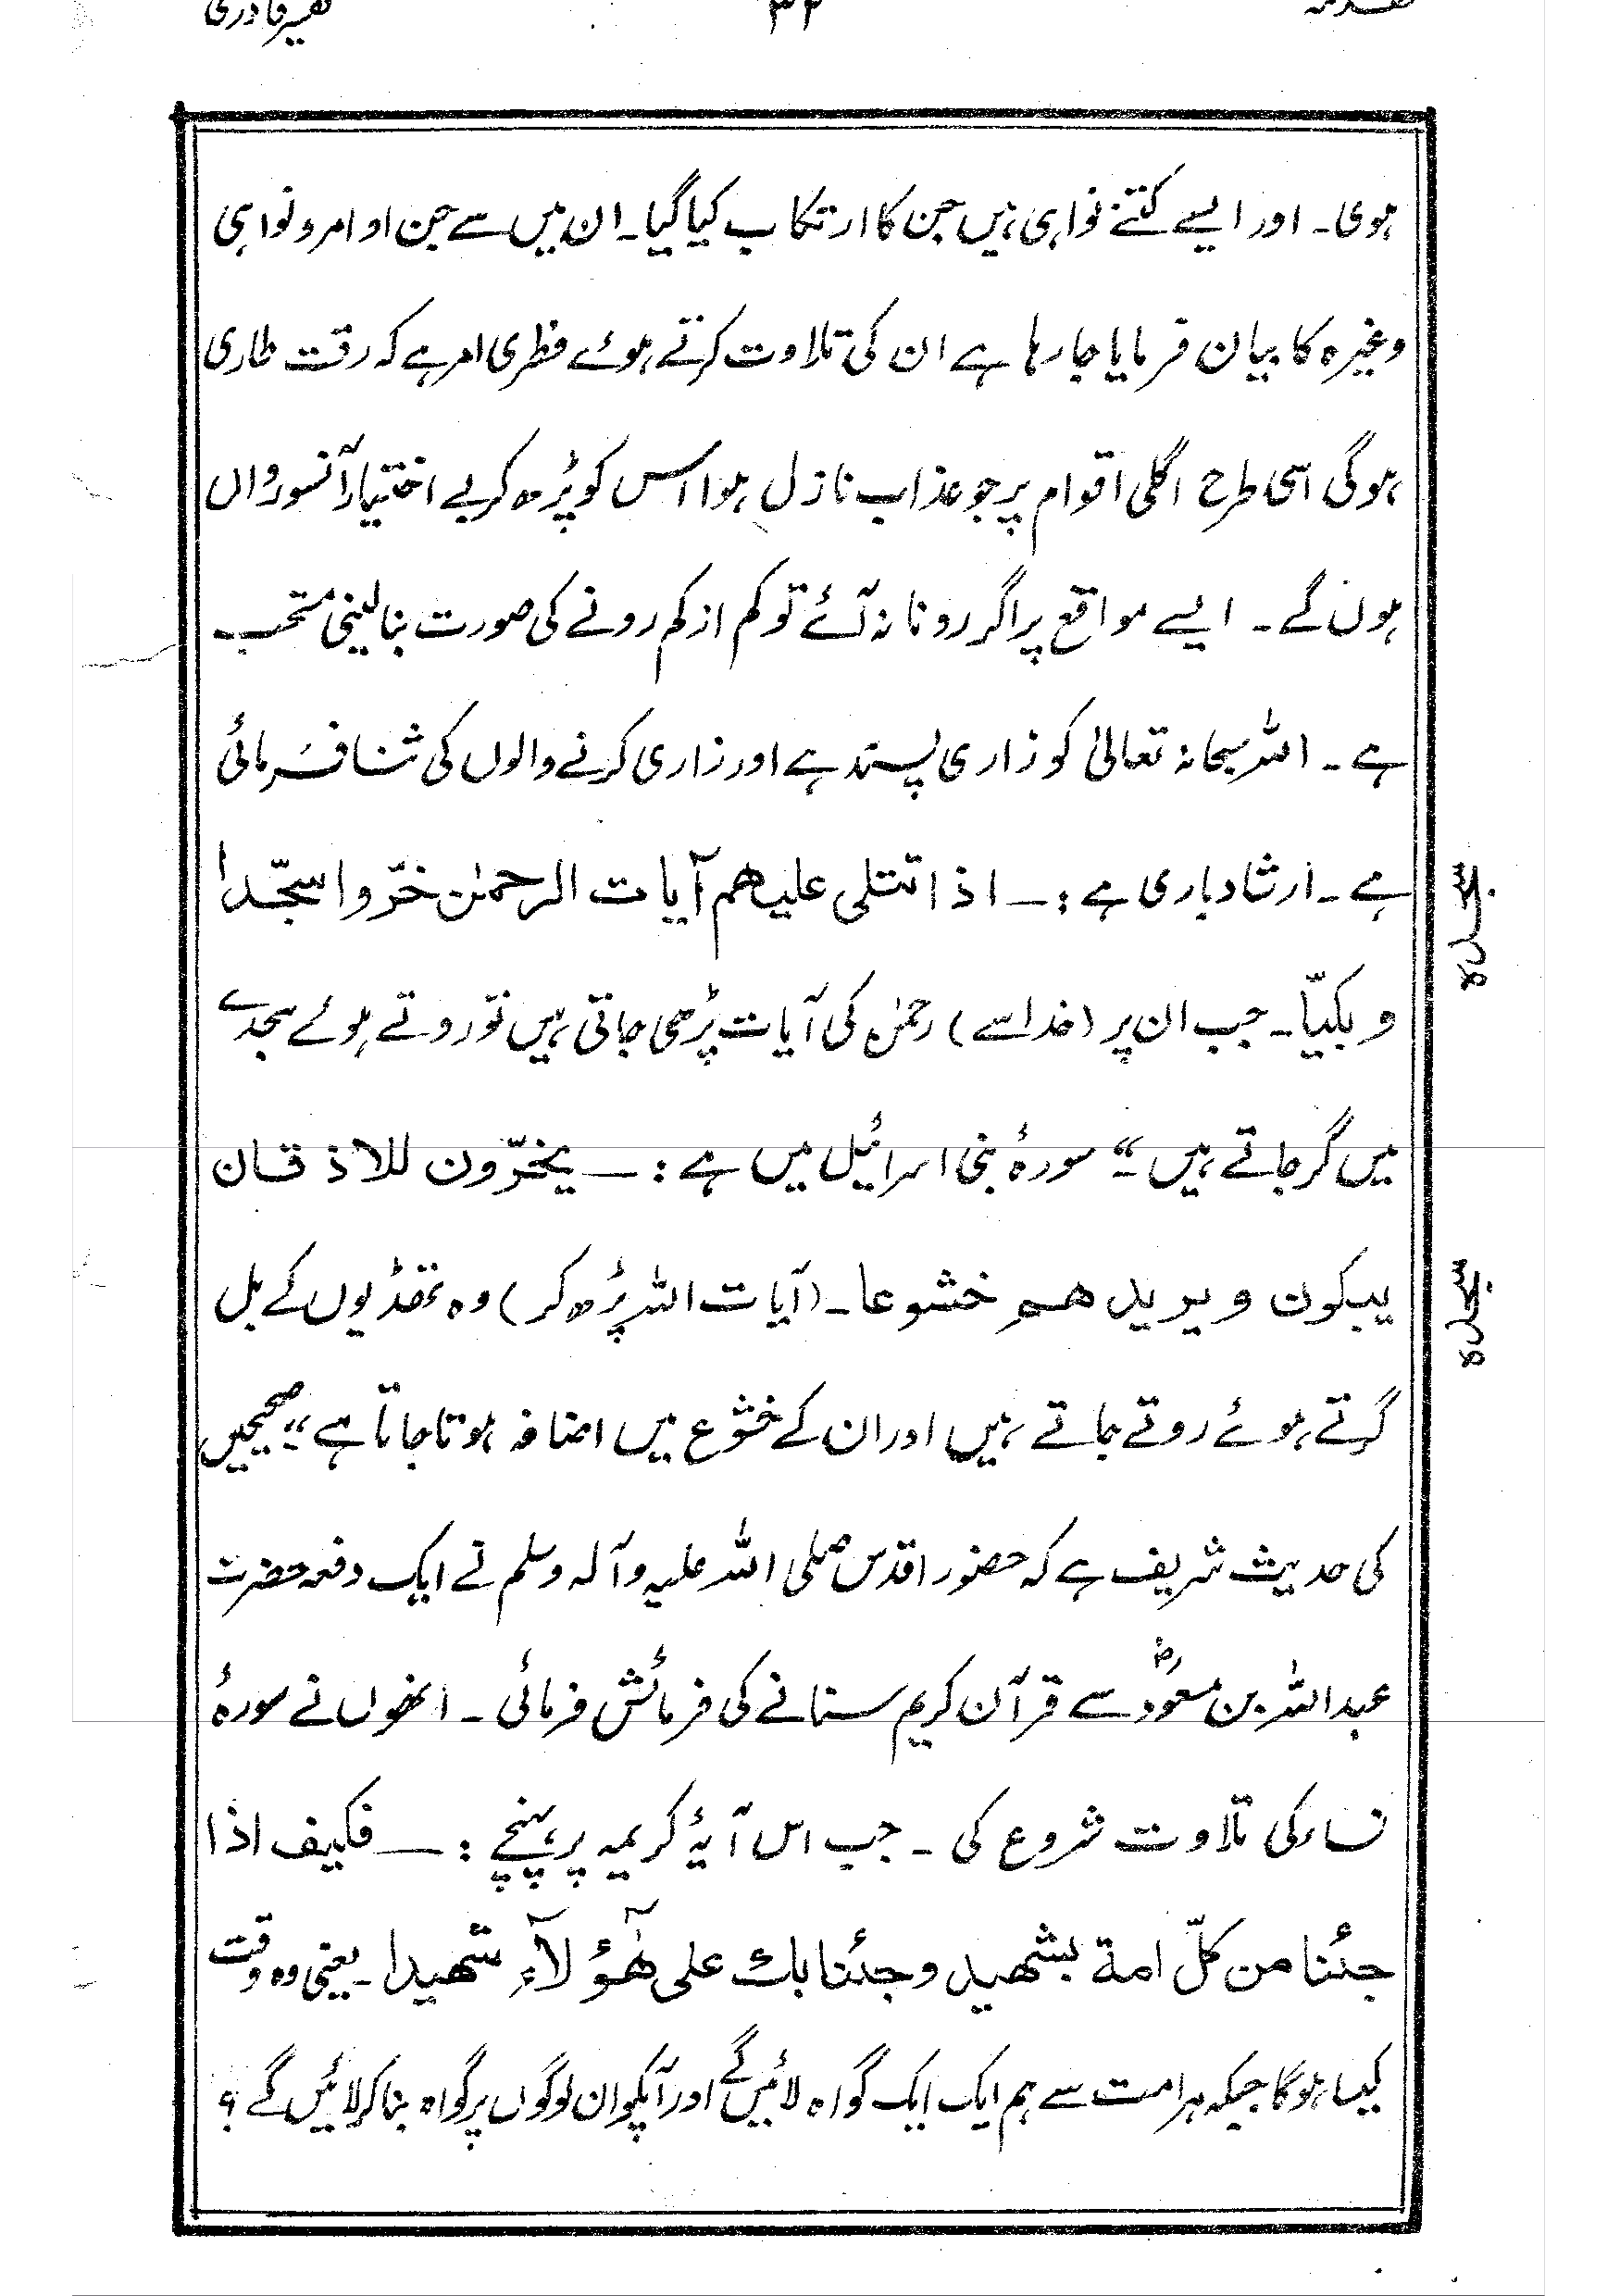 مقدمہ ۳۲ تفسیر قادری
ہوی۔ اور ایسے کتنے نواہی ہیں جن کا ارتکاب کیا گیا۔ ان میں سے جن اوامر و نواہی
وغیرہ کا بیان فرمایا جا رہا ہے ان کی تلاوت کرتے ہوئے فطری امر ہے کہ رقت طاری
ہوگی اسی طرح اگلی اقوام پر جو عذاب نازل ہوا اس کو پڑھ کر بے اختیار آنسو رواں
ہوں گے۔ ایسے مواقع پر اگر رونا نہ آئے تو کم از کم رونے کی صورت بنا لینی مستحب
ہے۔ اللہ سبحانہ تعالیٰ کو زاری پسند ہے اور زاری کرنے والوں کی ثنا فرمائی
ہے۔ ارشاد باری ہے :۔ اذا تتلی علیھم آیات الرحمٰن خرّوا سجّدا
و بکیّا۔ جب ان پر (خدائے) رحمٰن کی آیات پڑھی جاتی ہیں تو روتے ہوئے سجدے
میں گر جاتے ہیں۔“ سورۂ بنی اسرائیل میں ہے :۔ یخرّون للاذقان
یبکون و یزیدھم خشوعا۔ (آیات اللہ پڑھ کر) وہ ٹھڈیوں کے بل
گرتے ہوئے روتے جاتے ہیں اور ان کے خشوع میں اضافہ ہوتا جاتا ہے“ صحیحین
کی حدیث شریف ہے کہ حضور اقدس صلی اللہ علیہ وآلہ وسلم نے ایک دفعہ حضرت
عبداللہ بن مسعودؓ سے قرآن کریم سنانے کی فرمائش فرمائی۔ انھوں نے سورۂ
نساء کی تلاوت شروع کی۔ جب اس آیۂ کریمہ پر پہنچے :۔ فکیف اذا
جئنا من کلّ امۃ بشھید و جئنا بک علی ھٰٓؤلآءِ شھیدا۔ یعنی وہ وقت
کیسا ہوگا جبکہ ہر امت سے ہم ایک ایک گواہ لائیں گے اور آپکو ان لوگوں پر گواہ بنا کر لائیں گے ؟
سجدہ
سجدہ